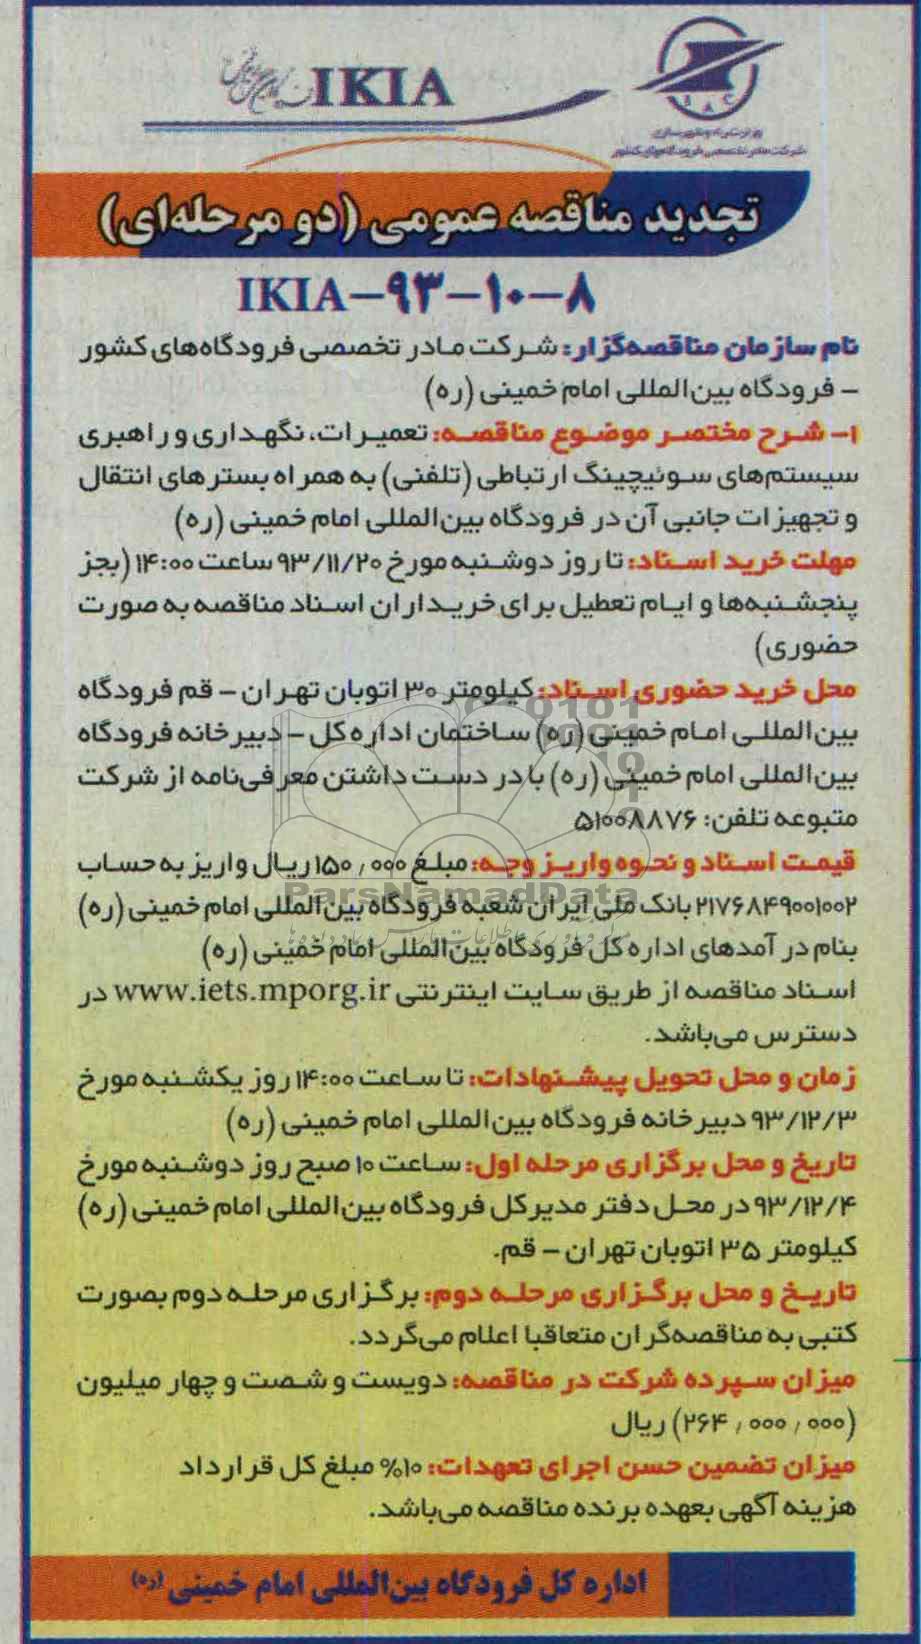 IKIA
SAC
وزارت راه و شهرسازی
شرکت مادر تخصصی فرودگاههای کشور
تجدید مناقصه عمومی (دو مرحله‌ای)
IKIA-۹۳-۱۰-۸
نام سازمان مناقصه‌گزار: شرکت مادر تخصصی فرودگاه‌های کشور
- فرودگاه بین‌المللی امام خمینی (ره)
۱- شرح مختصر موضوع مناقصه: تعمیرات، نگهداری و راهبری
سیستم‌های سوئیچینگ ارتباطی (تلفنی) به همراه بسترهای انتقال
و تجهیزات جانبی آن در فرودگاه بین‌المللی امام خمینی (ره)
مهلت خرید اسناد: تا روز دوشنبه مورخ ۹۳/۱۱/۲۰ ساعت ۱۴:۰۰ (بجز
پنجشنبه‌ها و ایام تعطیل برای خریداران اسناد مناقصه به صورت
حضوری)
محل خرید حضوری اسناد: کیلومتر ۳۰ اتوبان تهران - قم فرودگاه
بین‌المللی امام خمینی (ره) ساختمان اداره کل - دبیرخانه فرودگاه
بین‌المللی امام خمینی (ره) با در دست داشتن معرفی‌نامه از شرکت
متبوعه تلفن: ۵۱۰۰۸۸۷۶
قیمت اسناد و نحوه واریز وجه: مبلغ ۱۵۰٫۰۰۰ ریال واریز به حساب
ParsNamadData
۲۱۷۶۸۴۹۰۰۱۰۰۲ بانک ملی ایران شعبه فرودگاه بین‌المللی امام خمینی (ره)
بنام درآمدهای اداره کل فرودگاه بین‌المللی امام خمینی (ره)
اسناد مناقصه از طریق سایت اینترنتی www.iets.mporg.ir در
دسترس می‌باشد.
زمان و محل تحویل پیشنهادات: تا ساعت ۱۴:۰۰ روز یکشنبه مورخ
۹۳/۱۲/۳ دبیرخانه فرودگاه بین‌المللی امام خمینی (ره)
تاریخ و محل برگزاری مرحله اول: ساعت ۱۰ صبح روز دوشنبه مورخ
۹۳/۱۲/۴ در محل دفتر مدیرکل فرودگاه بین‌المللی امام خمینی (ره)
کیلومتر ۳۵ اتوبان تهران - قم.
تاریخ و محل برگزاری مرحله دوم: برگزاری مرحله دوم بصورت
کتبی به مناقصه‌گران متعاقبا اعلام می‌گردد.
میزان سپرده شرکت در مناقصه: دویست و شصت و چهار میلیون
(۲۶۴٫۰۰۰٫۰۰۰) ریال
میزان تضمین حسن اجرای تعهدات: ۱۰% مبلغ کل قرارداد
هزینه آگهی بعهده برنده مناقصه می‌باشد.
اداره کل فرودگاه بین‌المللی امام خمینی (ره)